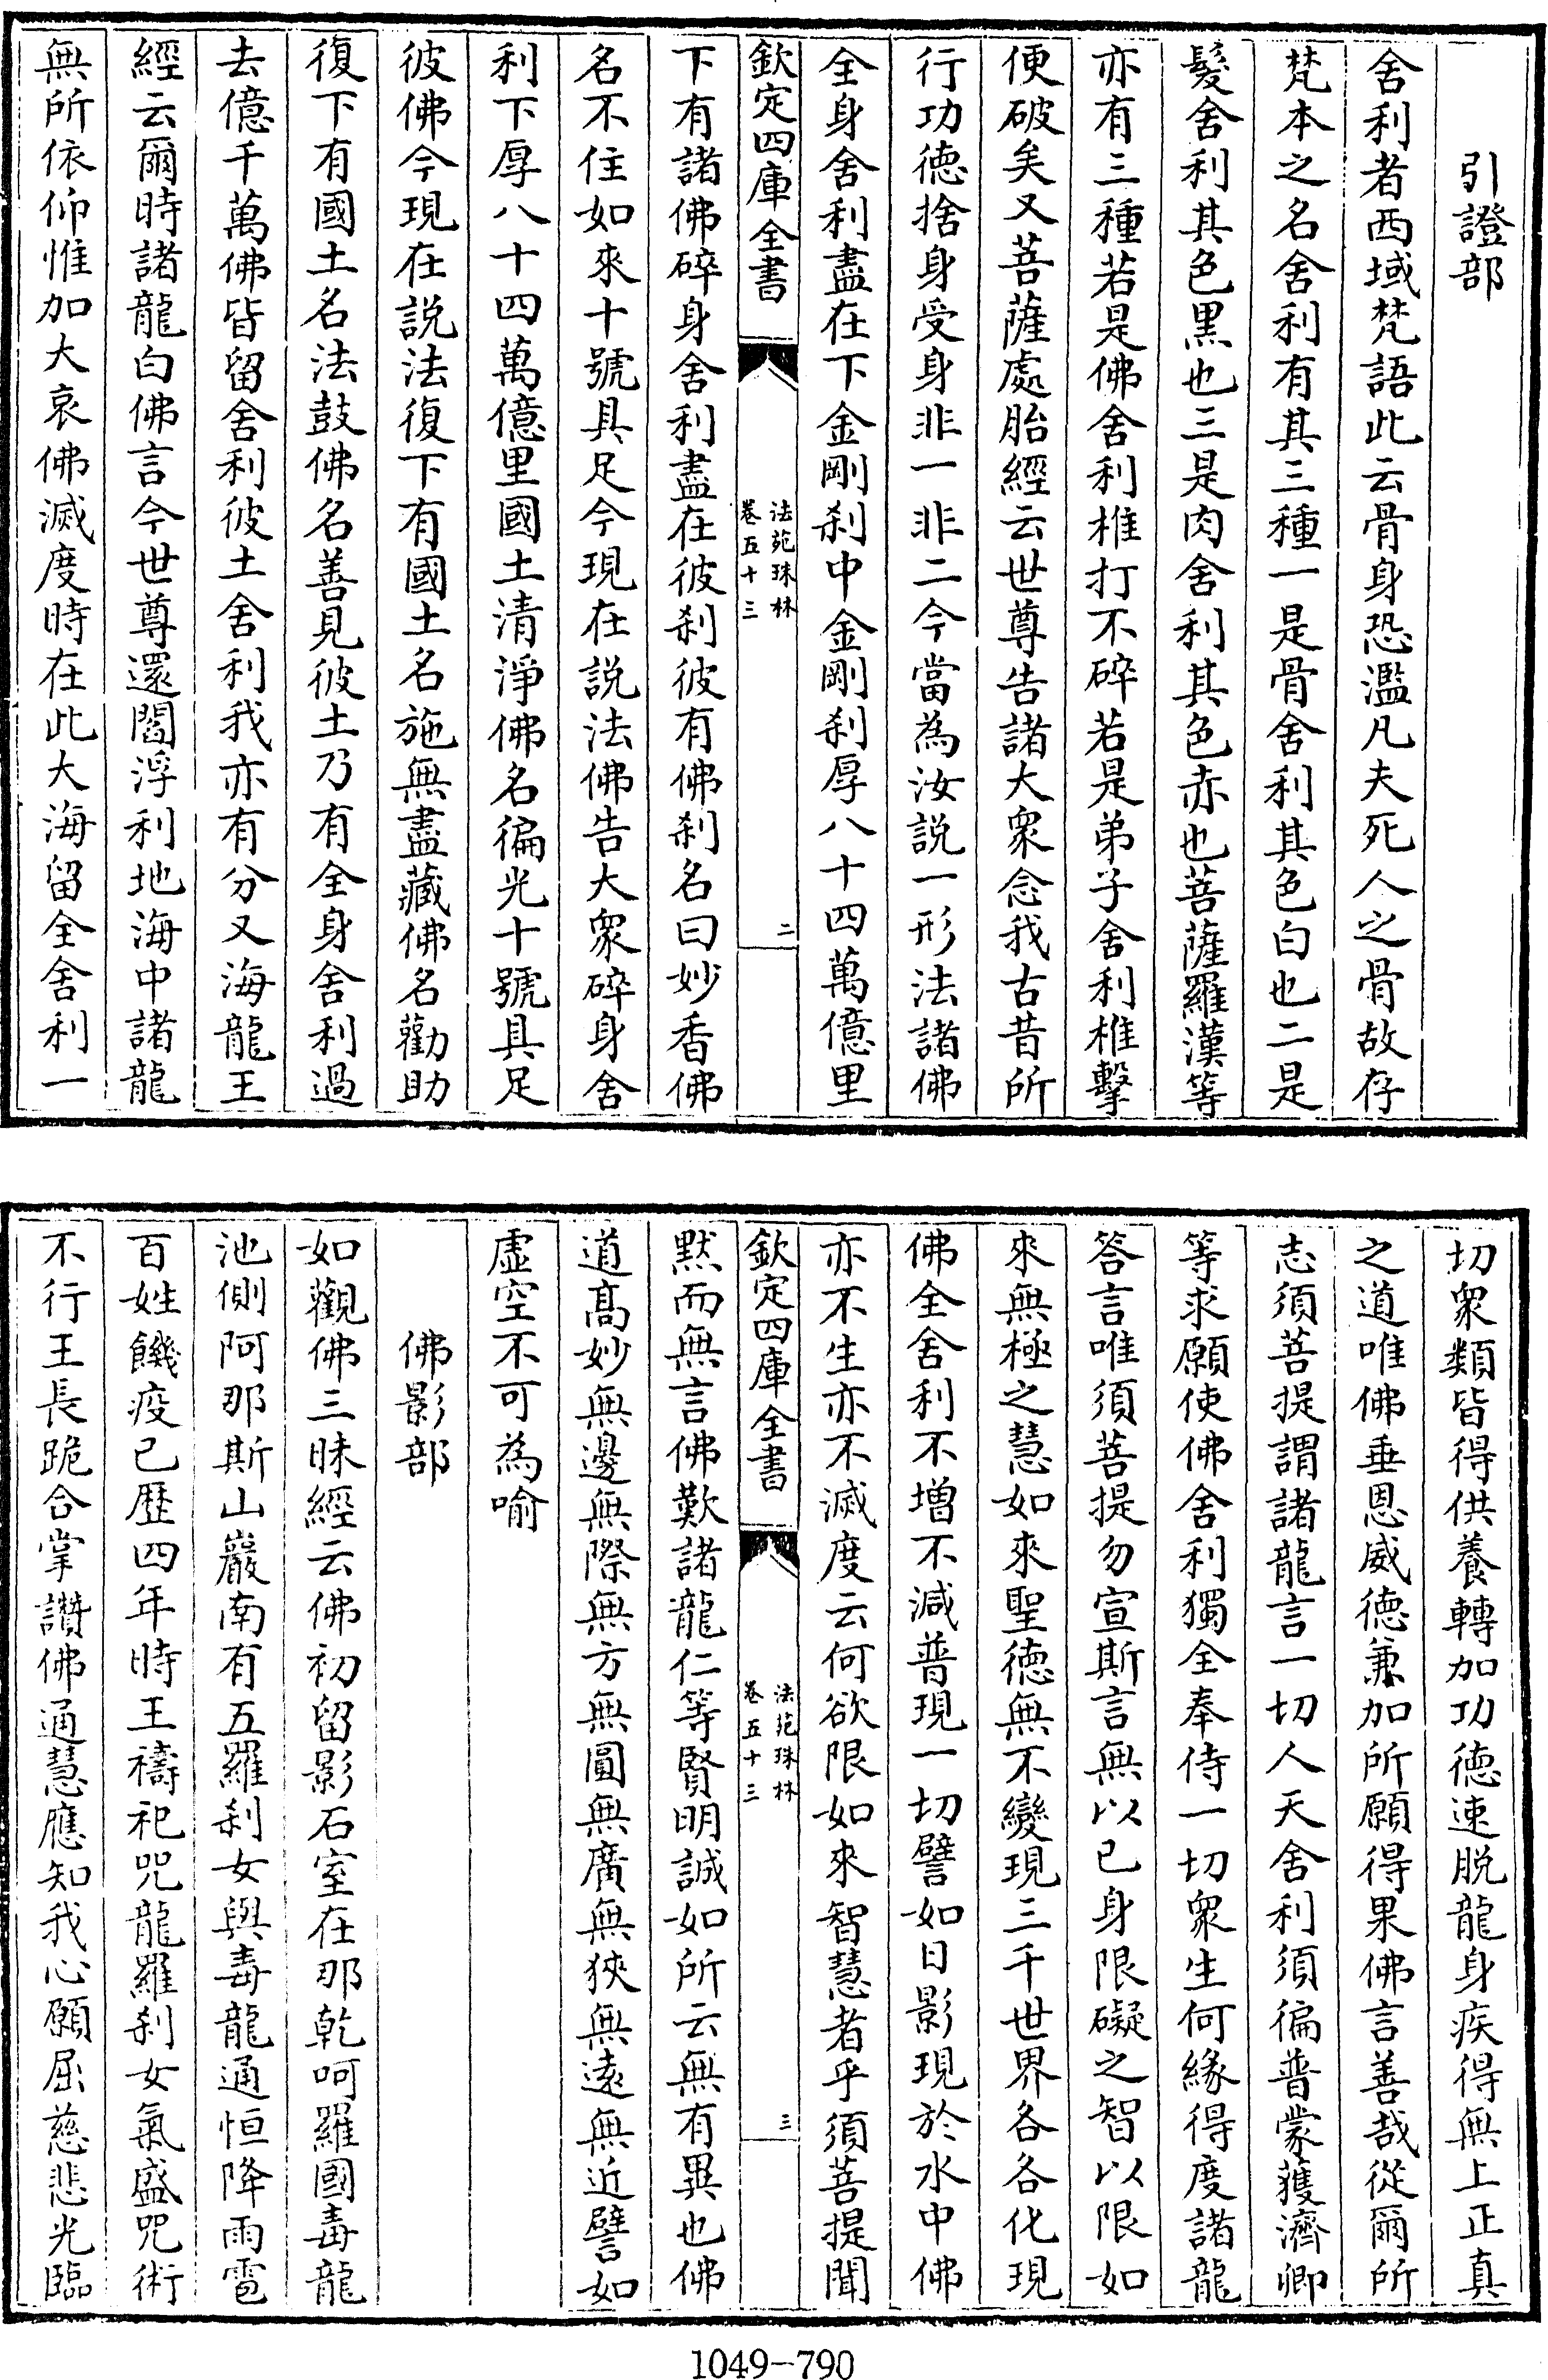 引證部
舍利者西域梵語此云骨身恐濫凡夫死人之骨故存
梵本之名舍利有其三種一是骨舍利其色白也二是
髮舍利其色黑也三是肉舍利其色赤也菩薩羅漢等
亦有三種若是佛舍利椎打不碎若是弟子舍利椎擊
便破矣又菩薩處胎經云世尊告諸大衆念我古昔所
行功徳捨身受身非一非二今當為汝説一形法諸佛
全身舍利盡在下金剛刹中金剛刹厚八十四萬億里
欽定四庫全書
法苑珠林
卷五十三
二
下有諸佛碎身舍利盡在彼刹彼有佛刹名曰妙香佛
名不住如來十號具足今現在説法佛告大衆碎身舍
利下厚八十四萬億里國土清淨佛名徧光十號具足
彼佛今現在説法復下有國土名施無盡藏佛名勸助
復下有國土名法鼓佛名善見彼土乃有全身舍利過
去億千萬佛皆留舍利彼土舍利我亦有分又海龍王
經云爾時諸龍白佛言今世尊還閻浮利地海中諸龍
無所依仰惟加大哀佛滅度時在此大海留全舍利一
切衆類皆得供養轉加功徳速脱龍身疾得無上正真
之道唯佛垂恩威徳兼加所願得果佛言善哉從爾所
志須菩提謂諸龍言一切人天舍利須徧普蒙獲濟卿
等求願使佛舍利獨全奉侍一切衆生何緣得度諸龍
答言唯須菩提勿宣斯言無以己身限礙之智以限如
來無極之慧如來聖徳無不變現三千世界各各化現
佛全舍利不增不減普現一切譬如日影現於水中佛
亦不生亦不滅度云何欲限如來智慧者乎須菩提聞
欽定四庫全書
法苑珠林
卷五十三
三
黙而無言佛歎諸龍仁等賢明誠如所云無有異也佛
道髙妙無邊無際無方無圓無廣無狹無逺無近譬如
虛空不可為喻
佛影部
如觀佛三昧經云佛初留影石室在那乾呵羅國毒龍
池側阿那斯山巖南有五羅刹女與毒龍通恒降雨雹
百姓饑疫已歴四年時王禱祀咒龍羅刹女氣盛咒術
不行王長跪合掌讚佛通慧應知我心願屈慈悲光臨
1049-790